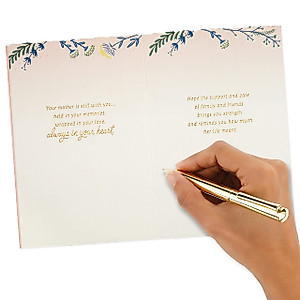 Your mother is still with you...
held in your memories,
wrapped in your love,
always in your heart.
Hope the support and care
of family and friends
brings you strength
and reminds you how much
her life meant.